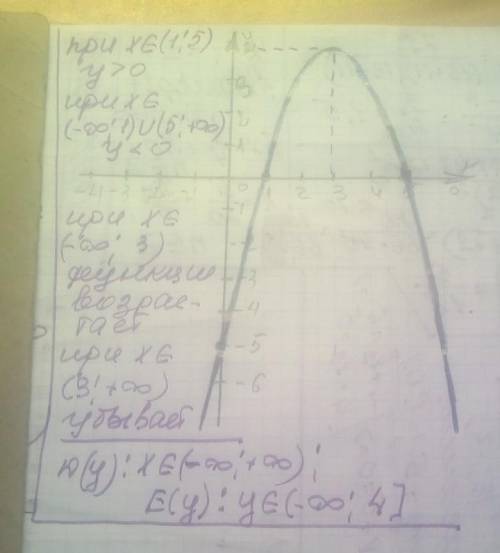 при x∈(1;5)
y>0
при x∈
(-∞;1)∪(5;+∞)
y<0
при x∈
(-∞; 3)
функция
возрас-
тает
при x∈
(3;+∞)
убывает
D(y): x∈(-∞;+∞);
E(y): y∈(-∞; 4]
4
3
2
1
x
-4 -3 -2 -1 0 1 2 3 4 5 6
-1
-2
-3
-4
-5
-6